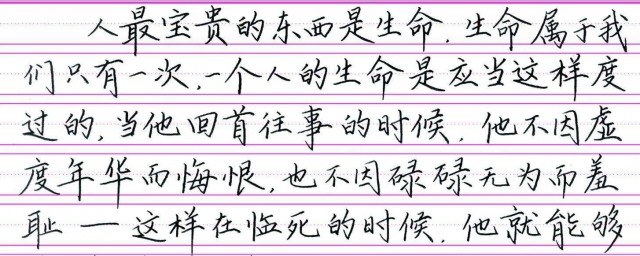 人最宝贵的东西是生命.生命属于我
们只有一次,一个人的生命是应当这样度
过的,当他回首往事的时候,他不因虚
度年华而悔恨,也不因碌碌无为而羞
耻—这样在临死的时候,他就能够